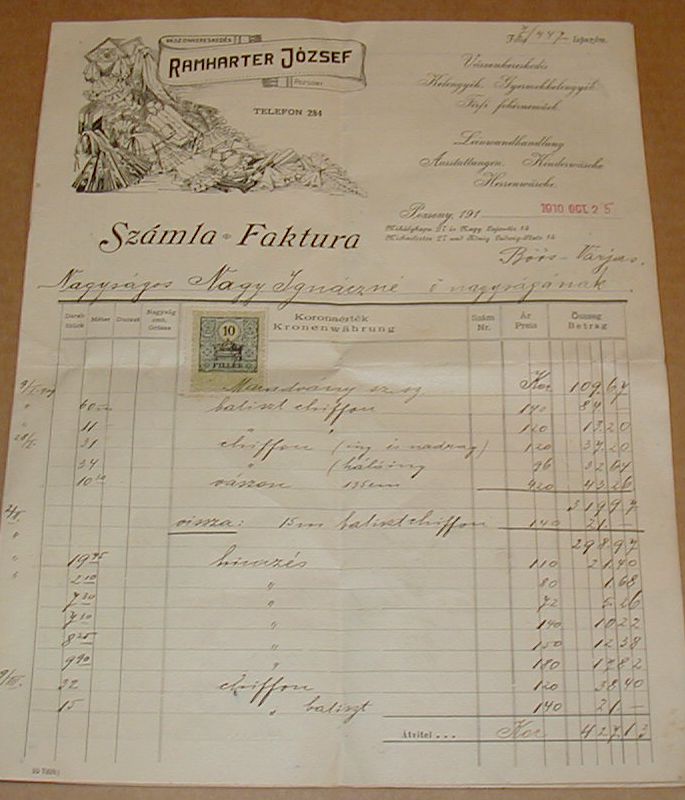 VÁSZONKERESKEDÉS
RAMHARTER JÓZSEF
POZSONY
TELEFON 284
7/447 lapszám.
Vászonkereskedés
Kelengyék, Gyermekkelengyék
Férfi fehérneműek
Leinwandhandlung
Ausstattungen, Kinderwäsche
Herrenwäsche.
Pozsony, 191 1910 OCT. 25
Mihálykapu 21 és Nagy Lajos-tér 14
Michaelertor 21 und König Ludwig-Platz 14
Számla - Faktura
Böös-Varjas.
Nagyságos Nagy Ignáczné ő nagyságának.
Darab Stück Méter Duczet Nagyság cent. Grösse Koronaérték Kronenwährung Szám Nr. Ár Preis Összeg Betrag
10
FILLÉR
Maradvány sz. sz Kor 109.67
" 60 batiszt chiffon 140 84.—
" 11 " " 120 13.20
31 chiffon (ing és nadrag) 120 37.20
34 " (hálóing 96 32.64
10 30 vászon 135 cm 420 43.26
319.97
vissza: 15 m batiszt chiffon 140 21.—
298.97
19 45 himzés 110 21.40
2 10 " 80 1.68
7 30 " 72 5.26
7 30 " 140 10.22
8 25 " 150 12.38
9 90 " 180 17.82
32 chiffon 120 38.40
15 " batiszt 140 21.—
Átvitel... Kor 427.13